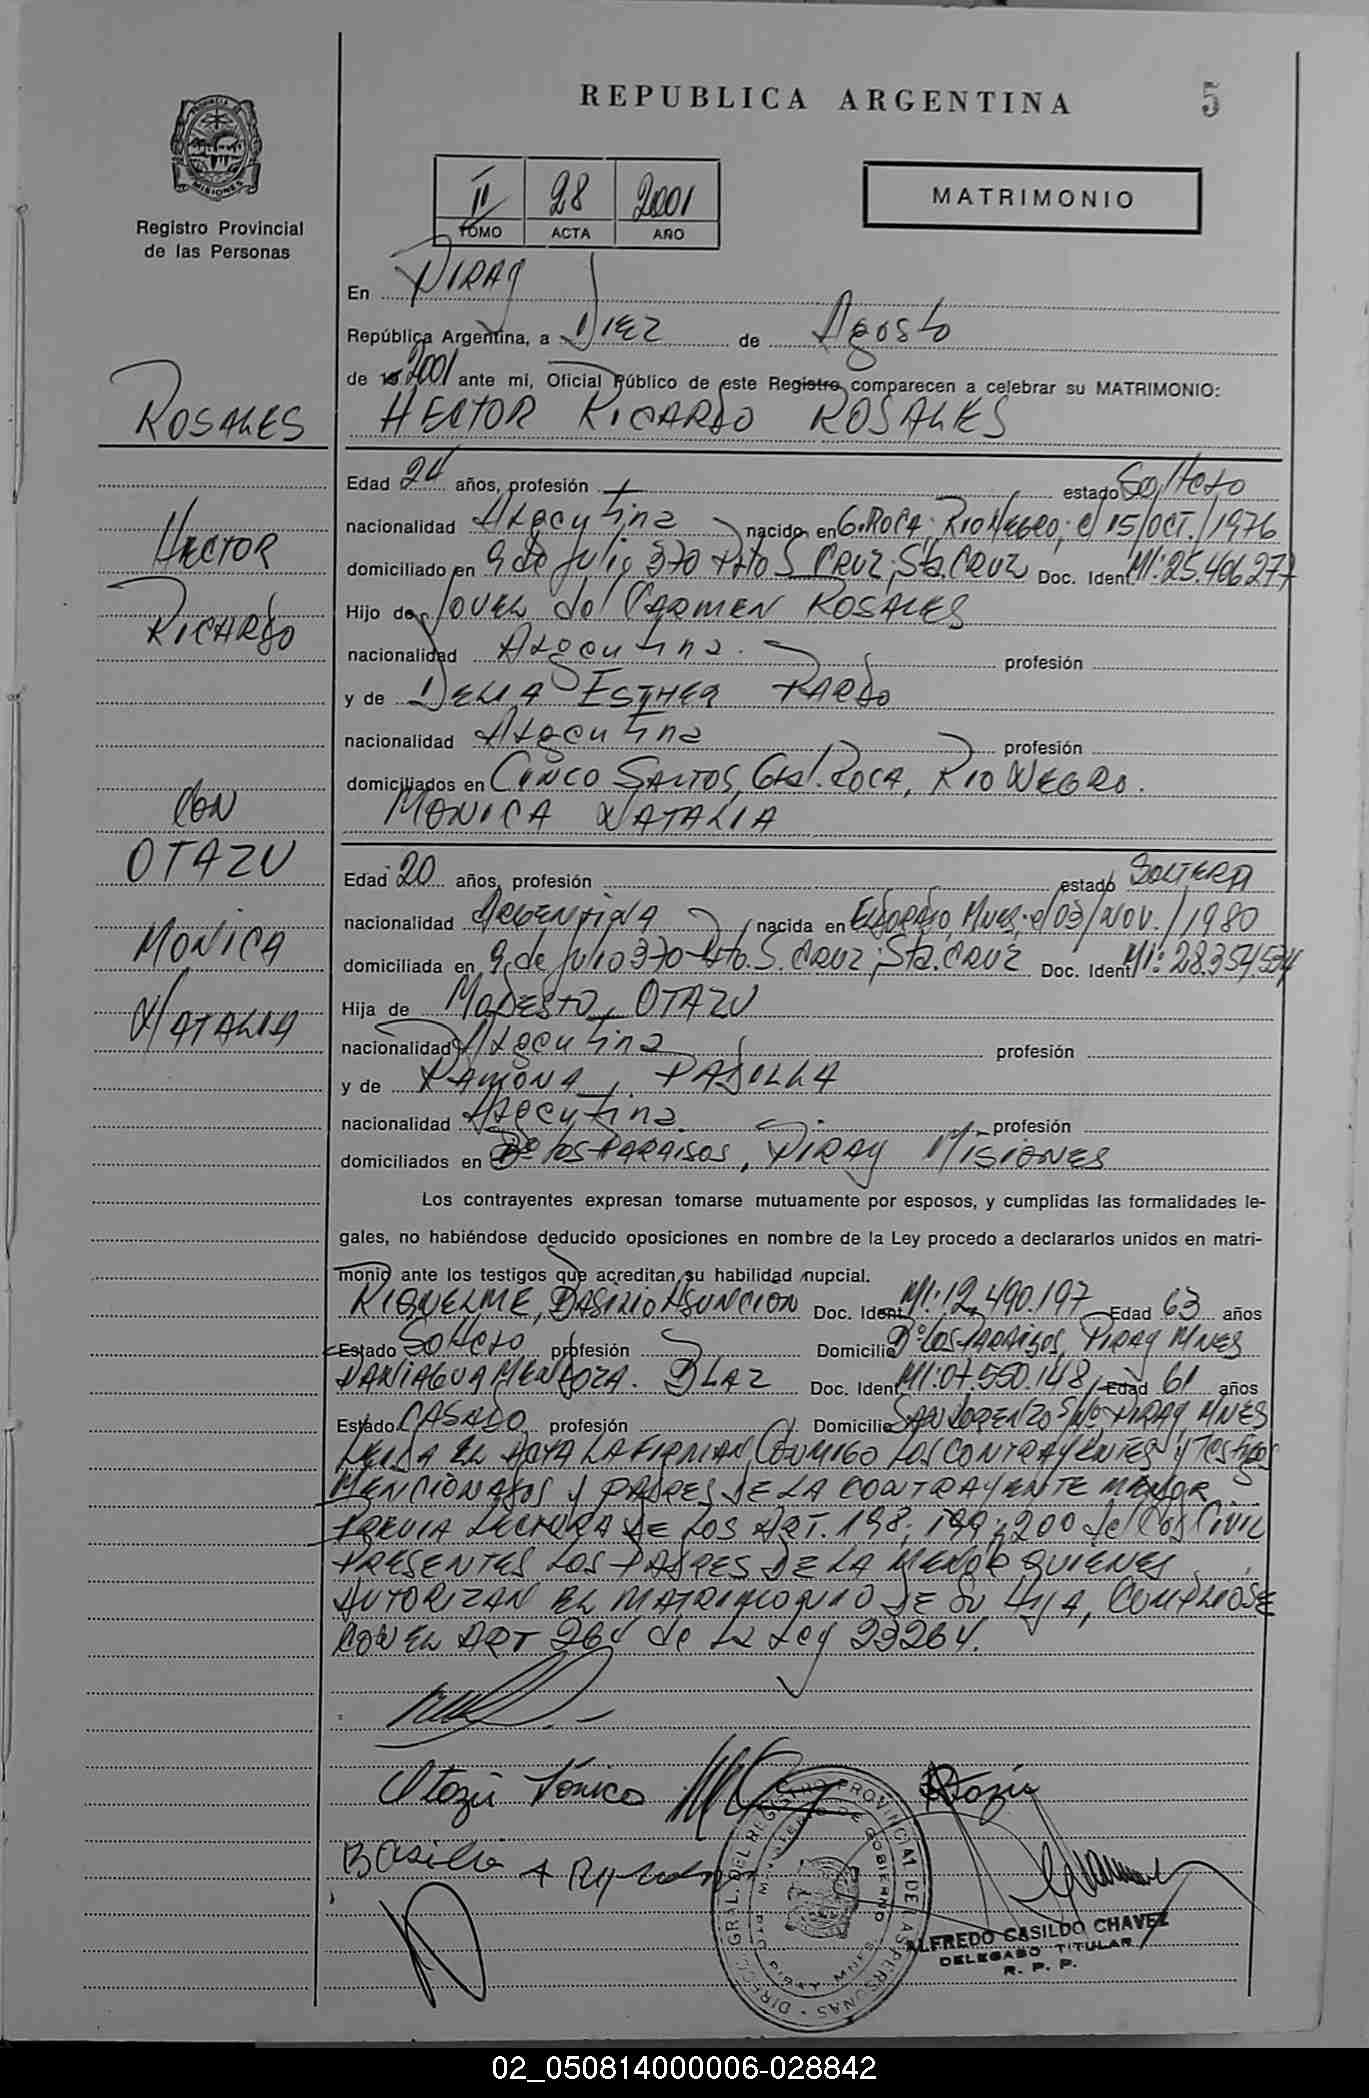 REPUBLICA ARGENTINA
5
PROVINCIA DE
MISIONES
Registro Provincial
de las Personas
II 28 2001
TOMO ACTA AÑO
MATRIMONIO
En PIRAY
República Argentina, a DIEZ de Agosto
de 19 2001 ante mi, Oficial Público de este Registro comparecen a celebrar su MATRIMONIO:
HECTOR RICARDO ROSALES
ROSALES
HECTOR
RICARDO
CON
OTAZU
MONICA
NATALIA
Edad 24 años, profesión estado Soltero
nacionalidad Argentina nacido en G.ROCA; RIO NEGRO; el 15/OCT./1976
domiciliado en 9 de Julio 370 Pto S. CRUZ; Sta. CRUZ Doc. Ident MI: 25.406.277
Hijo de JOVEL del CARMEN ROSALES
nacionalidad Argentina. profesión
y de DELIA ESTHER PARDO
nacionalidad Argentina profesión
domiciliados en CINCO SALTOS, Gral. ROCA, RIO NEGRO.
MONICA NATALIA
Edad 20 años, profesión estado SOLTERA
nacionalidad ARGENTINA nacida en ELDORADO, Mnes; el 03/NOV./1980
domiciliada en 9 de Julio 370 Pto. S. CRUZ; Sta. CRUZ Doc. Ident MI: 28.354.534
Hija de MODESTO, OTAZU
nacionalidad Argentina profesión
y de RAMONA, PADILLA
nacionalidad Argentina. profesión
domiciliados en Bº los PARAISOS, PIRAY MISIONES
Los contrayentes expresan tomarse mutuamente por esposos, y cumplidas las formalidades le-
gales, no habiéndose deducido oposiciones en nombre de la Ley procedo a declararlos unidos en matri-
monio ante los testigos que acreditan su habilidad nupcial.
RIQUELME, BASILIO ASUNCION Doc. Ident MI: 12.490.197 Edad 63 años
Estado Soltero profesión Domicilio Bº LOS PARAISOS, PIRAY MNES
PANIAGUA MENDOZA. BLAZ Doc. Ident MI: 07.550.148 Edad 61 años
Estado CASADO profesión Domicilio SAN LORENZO S/Nº PIRAY, MNES
LEIDA EL ACTA LA FIRMAN CONMIGO LOS CONTRAYENTES y Testigos
MENCIONADOS y PADRES DE LA CONTRAYENTE MENOR
PREVIA LECTURA DE LOS ART. 198; 199 y 200 del Cod Civil
PRESENTES LOS PADRES DE LA MENOR QUIENES
AUTORIZAN EL MATRIMONIO DE SU HIJA, CUMPLIOSE
CON EL ART 264 de La Ley 23264.
Otazú Mónica
Basilio A
DIREC. GRAL. DEL REGISTRO PROVINCIAL DE LAS PERSONAS
MINISTERIO DE GOBIERNO
PIRAY MNES
ALFREDO CASILDO CHAVEZ
DELEGADO TITULAR
R. P. P.
02_050814000006-028842